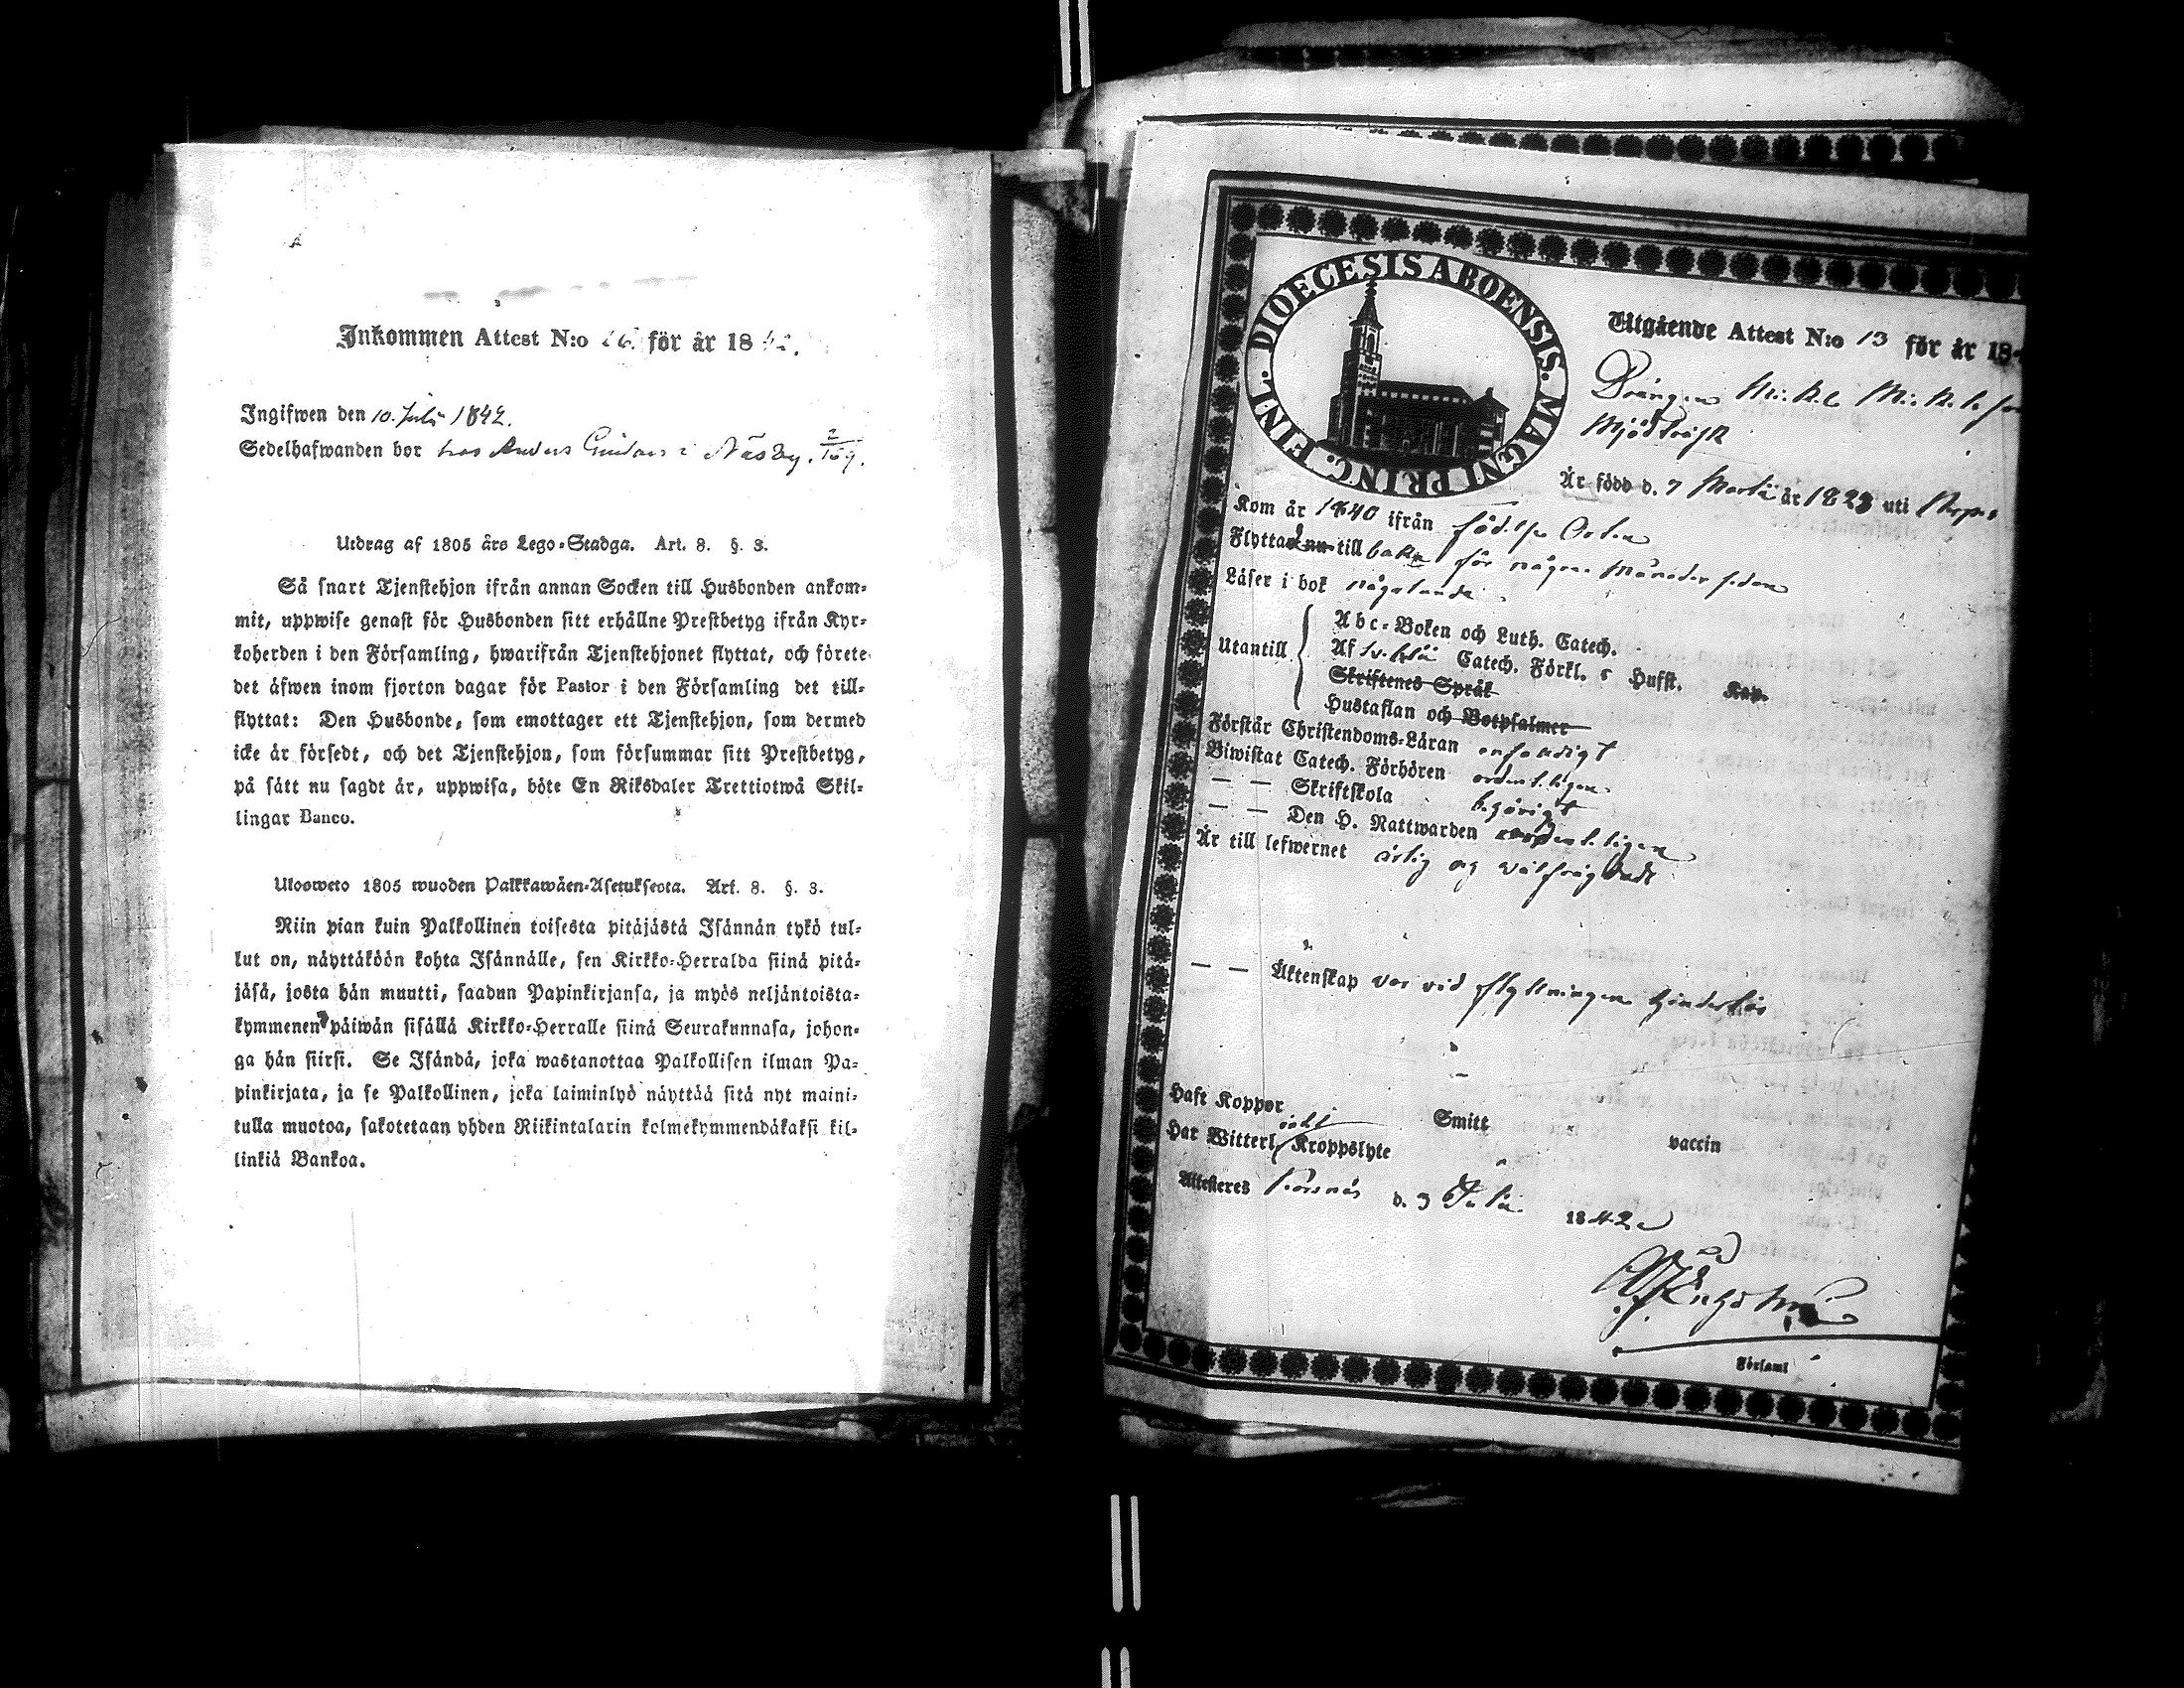 Inkommen Attest N:o 26. för år 1842.
Ingifwen den 10. Julii 1842.
Sedelhafwanden bor hos Anders i Näsby.
Utdrag af 1805 års Lego-Stadga. Art. 8. §. 3.
Så snart Tjenstehjon ifrån annan Socken till Husbonden ankom-
mit, uppwise genast för Husbonden sitt erhållne Prestbetyg ifrån Kyr-
koherden i den Församling, hwarifrån Tjenstehjonet flyttat, och förete
det äfwen inom fjorton dagar för Pastor i den Församling det till-
flyttat: Den Husbonde, som emottager ett Tjenstehjon, som dermed
icke är försedt, och det Tjenstehjon, som försummar sitt Prestbetyg,
på sätt nu sagdt är, uppwisa, böte En Riksdaler Trettiotwå Skil-
lingar Banco.
Ulosweto 1805 wuoden Palkkawäen-Asetuksesta. Art. 8. §. 3.
Niin pian kuin Palkollinen toisesta pitäjästä Isännän tykö tul-
lut on, näyttäköön kohta Isännälle, sen Kirkko-Herralda siinä pitä-
jäsä, josta hän muutti, saadun Papinkirjansa, ja myös neljäntoista-
kymmenen päiwän sisällä Kirkko-Herralle siinä Seurakunnasa, johon-
ga hän siirsi. Se Isändä, joka wastanottaa Palkollisen ilman Pa-
pinkirjata, ja se Palkollinen, joka laiminlyö näyttää sitä nyt maini-
tulla muotoa, sakotetaan yhden Riikintalarin kolmekymmendäkaksi kil-
linkiä Bankoa.
DIOECESIS ABOENSIS. MAGNI PRINC. FINL.
Utgående Attest N:o 13 för år 18
Drängen Mickel Mickelsson
Mjödträsk
Är född d. 7 Martii år 1823 uti
Kom år 1840 ifrån födelse Orten
Flyttade nu till baka för några Månader sedan
Läser i bok någorlunda
Utantill
Abc-Boken och Luth. Catech.
Af Catech. Förkl. 5 Hufst. Kap.
Skriftenes Språk
Hustaflan och Botpsalmer
Förstår Christendoms-Läran enfaldigt
Biwistat Catech. Förhören ordentligen
— — Skriftskola behörigt
— — Den H. Nattwarden ordentligen
Är till lefwernet ärlig og wälfräjdadt
— — Äktenskap var vid flyttningen hinderlös
Haft Koppor Smitt vaccin
Har Witterl. Kroppslyte
Attesteres Korsnäs d. 3 Julii 1842
Församl